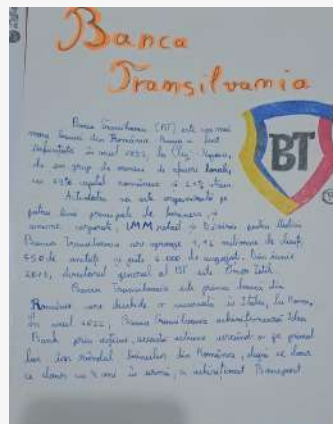 Banca
Transilvania
BT
Banca Transilvania (BT) este cea mai
mare bancă din România. Banca a fost
înființată în anul 1993, la Cluj-Napoca,
de un grup de oameni de afaceri locali,
cu capital românesc și străin
Activitatea sa este organizată pe
linii principale de business și
anume corporate, IMM, retail și Divizia pentru Medici
Banca Transilvania are aproape milioane de clienți,
550 de unități și peste 6.000 de angajați. Din iunie
2013, directorul general al BT este
Banca Transilvania este prima bancă din
România care deschide o sucursală în Italia, la Roma,
În anul 2022, Banca Transilvania achiziționează Idea
Bank prin acțiuni, această acțiune urcând-o pe primul
loc în rândul băncilor din România, după ce doar
cu ani în urmă, a achiziționat Bancpost